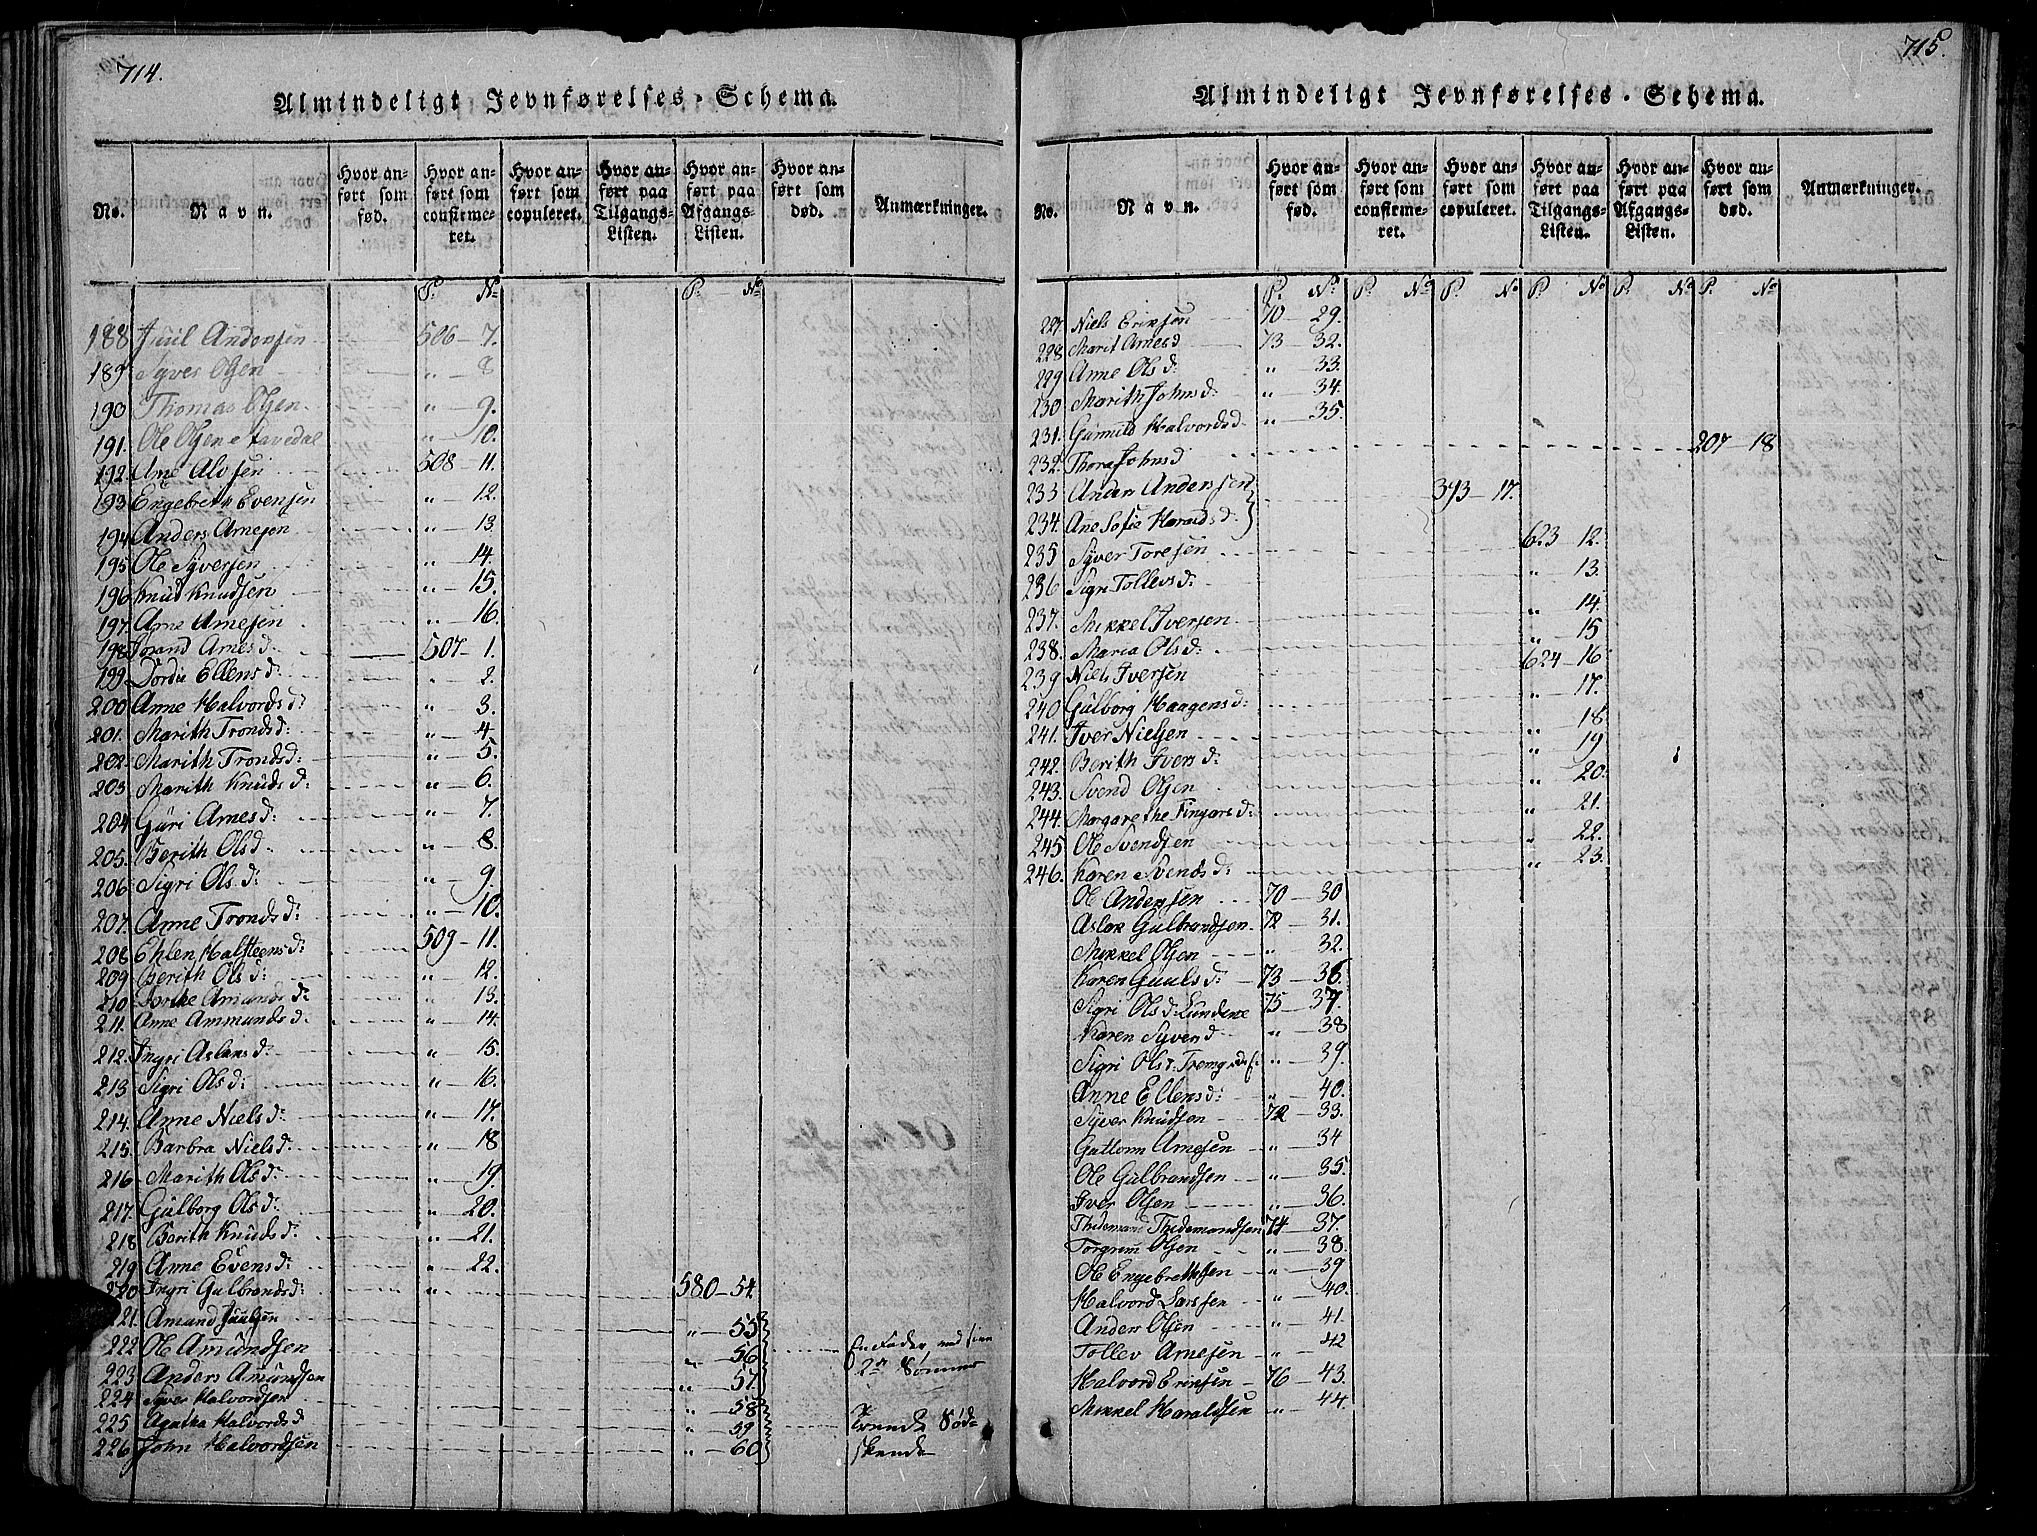 714.
Almindeligt Jevnførelses-Schema.
No. Navn. Hvor anført som fød. Hvor anført som confirmeret. Hvor anført som copuleret. Hvor anført paa Tilgangs-Listen. Hvor anført paa Afgangs-Listen. Hvor anført som død. Anmærkninger.
P. No P. No
188 Juul Andersen 506 — 7.
189 Syver Olsen „ — 8
190 Thomas Olsen „ — 9.
191. Ole Olsen Stavedal „ — 10.
192. Arne Alvsen 508 — 11.
193 Engebreth Evensen „ — 12.
194 Anders Arnesen „ — 13
195 Ole Syversen „ — 14.
196 Knud Knudsen „ — 15.
197. Arne Arnesen „ — 16.
198 Jorand Arnesd. 507 — 1.
199 Dordie Ellensd: „ — 2.
200 Anne Halvordsd: „ 3.
201. Marith Trondsd: „ — 4
202. Marith Trondsd: „ — 5.
203 Marith Knudsd: „ — 6.
204 Guri Arnesd: „ — 7.
205. Berith Olsd. „ — 8.
206 Sigri Olsd: „ — 9.
207. Anne Trondsd: „ — 10.
208 Ehlen Halsteensd: 509 — 11.
209 Berith Olsd: „ 12.
210 Dorthe Amundsd: „ — 13.
211. Anne Ammundsd. „ — 14.
212. Ingri Aslaksd: „ — 15.
213 Sigri Olsd: „ — 16.
214. Anne Nielsd: „ — 17.
215. Barbra Nielsd: „ — 18
216 Marith Olsd: „ — 19.
217. Gulborg Olsd: „ — 20.
218 Berith Knudsd: „ — 21.
219 Anne Evensd: „ — 22.
220 Ingri Gulbrandsd: „ 580 — 54.
221. Amund Juulsen „ — 55
222 Ole Amundsen „ — 56 En Fader, med sine
223 Anders Amundsen „ — 57 2de Sønner
224 Syver Halvordsen „ — 58
225 Agatha Halvordsd „ 59 Trende Sød-
226 John Halvordsen „ — 60 skende
715.
Almindeligt Jevnførelses-Schema.
No. Navn. Hvor anført som fød. Hvor anført som confirmeret. Hvor anført som copuleret. Hvor anført paa Tilgangs-Listen. Hvor anført paa Afgangs-Listen. Hvor anført som død. Anmærkninger.
P. No P. No P. No P. No P. No P. No
227. Niels Eriksen 70 — 29.
228 Marit Arnesd 73 — 32.
229 Anne Olsd: „ 33.
230 Marith Johnsd: „ — 34.
231. Gunnild Halvordsd. „ — 35.
232. Thora Johnsd 207 — 18
233 Anders Andersen 393 — 17.
234. Ane Sofie Haraldsd.
235 Syver Toresen 623 12.
236 Sigri Tollevsd: „ 13.
237. Mikkel Iversen „ 14.
238. Maria Olsd. „ 15
239 Niels Iversen 624 — 16
240 Gulborg Haagensd: „ — 17.
241. Iver Nielsen „ 18
242. Berith Iversd: „ 19
243. Svend Olsen „ 20.
244. Margarethe Fingarsd: „ 21.
245 Ole Svendsen „ 22.
246. Karen Svendsd: „ 23.
Ole Andersen 70 — 30
Aslak Gulbrandsen 72 — 31.
Mikkel Olsen „ 32.
Karen Guulsd: 73 — 36.
Sigri Olsd. Lundene 75 — 37.
Karen Syversd „ — 38
Sigri Olsd: „ — 39.
Anne Ellensd: „ — 40.
Syver Knudsen 72 — 33.
Guttorm Arnesen „ — 34
Ole Gulbrandsen „ — 35.
Iver Olsen „ — 36.
Thidemand Thidemandsen 74 — 37.
Torgrim Olsen „ — 38.
Ole Engebrethsen „ — 39
Halvord Larssen „ — 40.
Anders Olsen „ — 41.
Tollev Arnesen „ — 42
Halvord Eriksen 76 — 43.
Mikkel Haraldsen „ — 44.